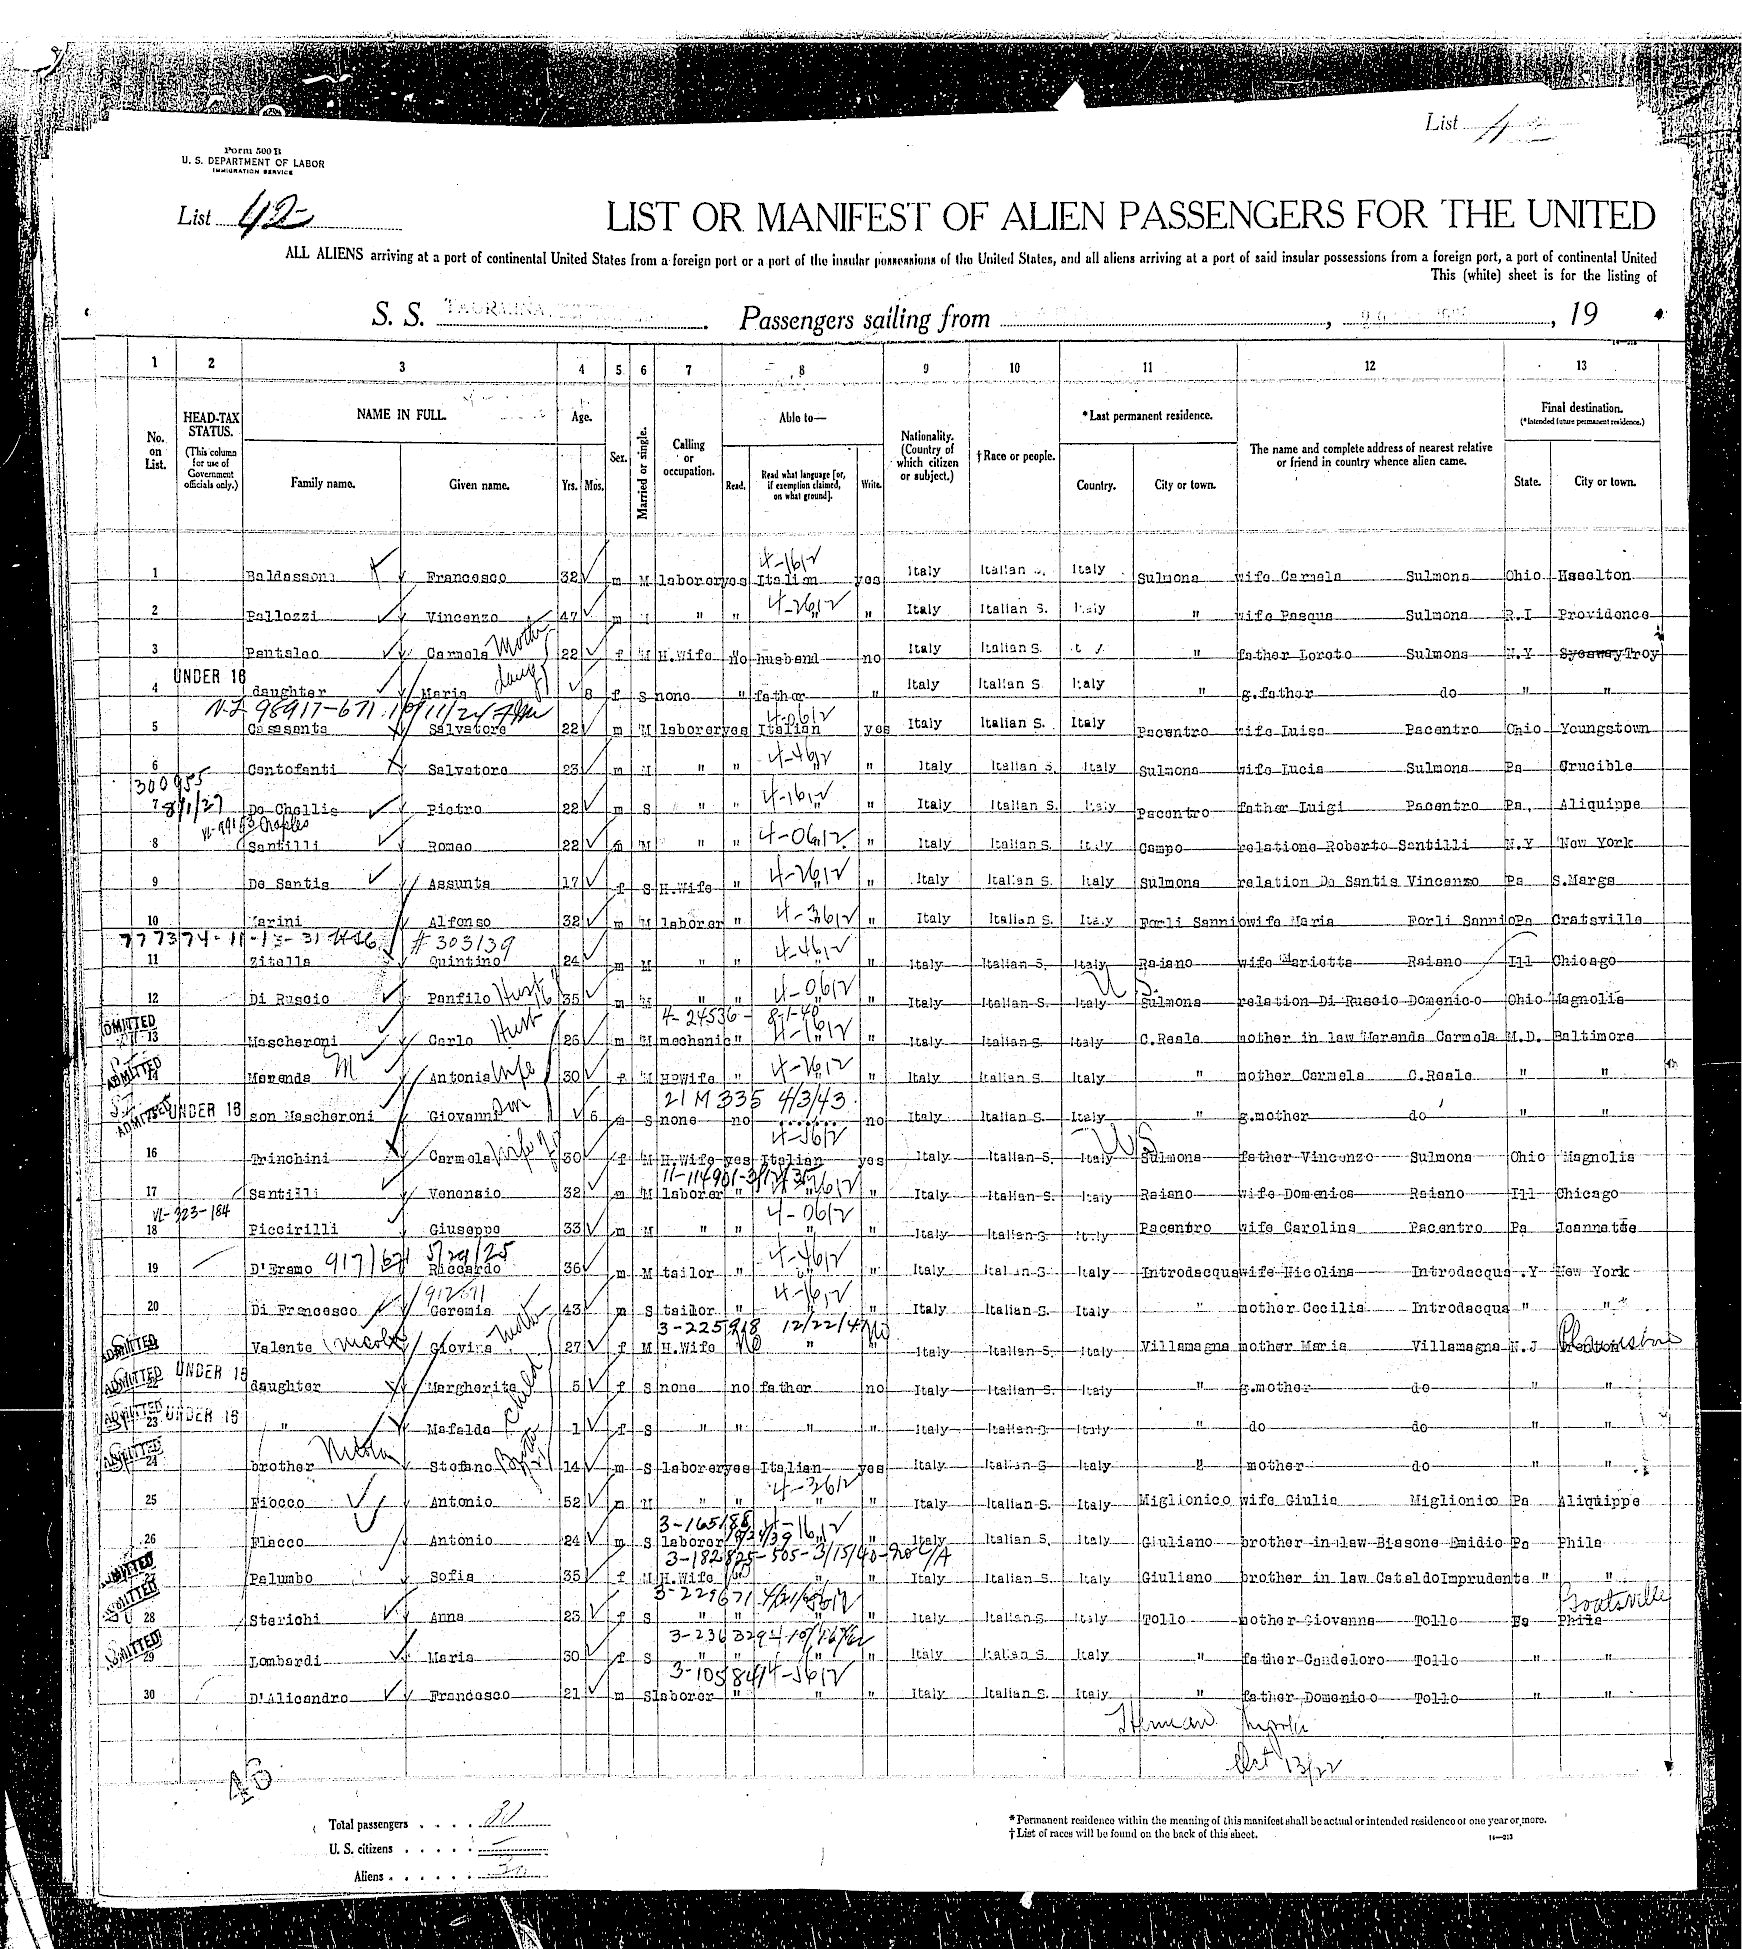 List 4
Form 500 B
U. S. DEPARTMENT OF LABOR
IMMIGRATION SERVICE
List 42
LIST OR MANIFEST OF ALIEN PASSENGERS FOR THE UNITED
ALL ALIENS arriving at a port of continental United States from a foreign port or a port of the insular possessions of the United States, and all aliens arriving at a port of said insular possessions from a foreign port, a port of continental United
This (white) sheet is for the listing of
S. S. TAORMINA . Passengers sailing from , , 19
1 2 3 4 5 6 7 8 9 10 11 12 13
No. on List. HEAD-TAX STATUS. (This column for use of Government officials only.) NAME IN FULL. Family name. Given name. Age. Yrs. Mos. Sex. Married or single. Calling or occupation. Able to— Read. Read what language [or, if exemption claimed, on what ground]. Write. Nationality. (Country of which citizen or subject.) † Race or people. *Last permanent residence. Country. City or town. The name and complete address of nearest relative or friend in country whence alien came. Final destination. (*Intended future permanent residence.) State. City or town.
4-1612
1 Baldassona Francesco 32 m M laborer yes Italian yes Italy Italian S. Italy Sulmona wife Carmela Sulmona Ohio Haselton
2 Pallozzi Vincenzo 47 m M " " 4-2612 " Italy Italian S. Italy " wife Pasqua Sulmona R.I Providence
3 Pantaleo Carmela 22 f M H.Wife No husband no Italy Italian S. " father Loreto Sulmona N.Y Troy
UNDER 16
4 daughter Maria 8 f S none " father " Italy Italian S. Italy " g.father do " "
5 Casasanta Salvatore 22 m M laborer yes Italian yes Italy Italian S. Italy Pacentro wife Luisa Pacentro Ohio Youngstown
6 Centofanti Salvatore 23 m M " " " Italy Italian S. Italy Sulmona wife Lucia Sulmona Pa Crucible
300955
7 8/1/27 De Chellis Pietro 22 m S " " 4-1612 " Italy Italian S. Italy Pacentro father Luigi Pacentro Pa, Aliquippe
8 Santilli Romeo 22 m M " " 4-0612 " Italy Italian S. Italy Campo relatione Roberto Santilli N.Y New York
9 De Santis Assunta 17 f S H.Wife " 4-2612 " Italy Italian S. Italy Sulmona relation De Santis Vincenzo Pa S.Marge
10 Marini Alfonso 32 m M laborer " 4-3612 " Italy Italian S. Italy Forli Sannio wife Maria Forli Sannio Pa Cratsville
# 303139
11 Zitella Quintino 24 m M " " 4-4612 " Italy Italian S. Italy Raiano wife Marietta Raiano Ill Chicago
12 Di Ruscio Panfilo 35 m M " " 4-0612 " Italy Italian S. Italy Sulmona relation Di Ruscio Domenico Ohio Magnolia
4-24536 - 8-1-40
ADMITTED
13 Mascheroni Carlo 26 m M mechanic " 4-1612 " Italy Italian S. Italy C.Reale mother in law Merenda Carmela M.D. Baltimore
ADMITTED
14 Merenda Antonia Wife 30 f M H.Wife " 4-2612 " Italy Italian S. Italy " mother Carmela C.Reale " "
21 M 335 4/3/43
ADMITTED UNDER 16
15 son Mascheroni Giovanni Son 6 m S none no no Italy Italian S. Italy " g.mother do " "
US
16 Trinchini Carmela wife 30 f M H.Wife yes Italian yes Italy Italian S. Italy Sulmona father Vincenzo Sulmona Ohio Magnolia
17 Santilli Venensio 32 m M laborer " " Italy Italian S. Italy Raiano wife Domenica Raiano Ill Chicago
VL-323-184
18 Piccirilli Giuseppe 33 m M " " 4-0612 " Italy Italian S. Italy Pacentro wife Carolina Pacentro Pa Jeannette
5/29/25
19 D'Eramo 917/671 Riccardo 36 m M tailor " 4-4612 " Italy Italian S. Italy Introdacqua wife Nicolina Introdacqua .Y New York
20 Di Francesco Geremia 43 m S tailor " 4-1612 " Italy Italian S. Italy " mother Cecilia Introdacqua " "
3-225918 12/22/41
ADMITTED
Valente Giovina 27 f M H.Wife No " No Italy Italian S. Italy Villamagna mother Maria Villamagna N.J
ADMITTED UNDER 16
22 daughter Margherita 5 f S none no father no Italy Italian S. Italy " g.mother do " "
ADMITTED UNDER 16
23 " Mafalda child 1 f S " " " " Italy Italian S. Italy " do do " "
ADMITTED
24 brother Stefano 14 m S laborer yes Italian yes Italy Italian S Italy " mother do " "
25 Fiocco Antonio 52 m M " " 4-3612 " Italy Italian S. Italy Miglionico wife Giulia Miglionico Pa Aliquippe
3-165188
26 Flacco Antonio 24 m S laborer " Italy Italian S. Italy Giuliano brother in law Biasone Emidio Pa Phila
3-182825-505-3/15/40
ADMITTED
27 Palumbo Sofia 35 f M H.Wife " " Italy Italian S. Italy Giuliano brother in law Cataldo Imprudente " "
3-229671
ADMITTED
28 Sterichi Anna 23 f S " " " " Italy Italian S. Italy Tollo mother Giovanna Tollo Pa Phila Coatsville
ADMITTED
29 Lombardi Maria 30 f S " " " " Italy Italian S. Italy " father Candeloro Tollo " "
30 D'Alicandro Francesco 21 m S laborer " " " Italy Italian S. Italy " father Domenico Tollo " "
Herman
Oct 13/22
Total passengers . . . . 30
U. S. citizens . . . . .
Aliens . . . . . . 30
*Permanent residence within the meaning of this manifest shall be actual or intended residence of one year or more.
† List of races will be found on the back of this sheet.